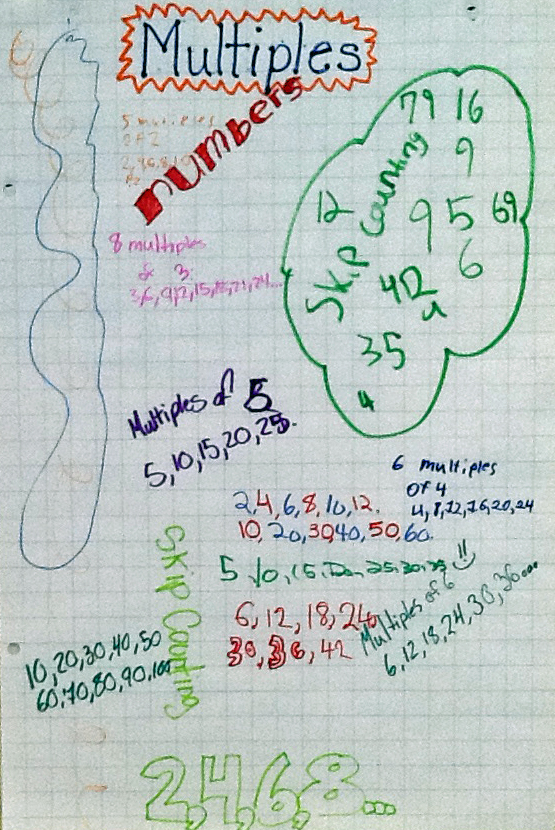 Multiples
numbers
5 multiples
of 2
2,4,6,8,10
8 multiples
of 3:
3,6,9,12,15,18,21,24...
79 16
9
12
Skip Counting
9 5 69
6
412
4
35
4
Multiples of 5
5,10,15,20,25.
6 multiples
of 4
4,8,12,16,20,24
2,4,6,8,10,12.
10,20,30,40,50,60.
5,10,15,
6,12,18,24,
30,36,42
Multiples of 6
6,12,18,24,30,36...
Skip Counting
10,20,30,40,50
60,70,80,90,100
2,4,6,8...